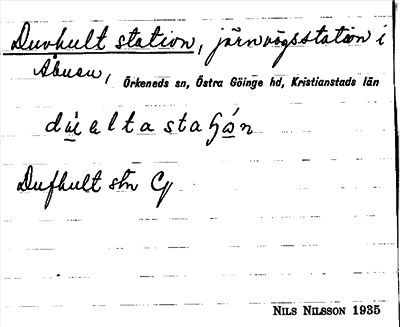 Duvhult station, järnvägsstation i
Abuen, Örkeneds sn, Östra Göinge hd, Kristianstads län
Dufhult stn Cj
NILS NILSSON 1935